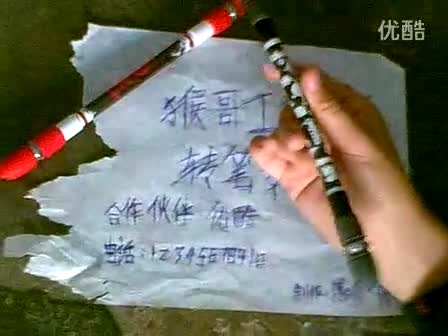 优酷
猴哥工
转笔
合作伙伴 优酷
电话:123456789
制作